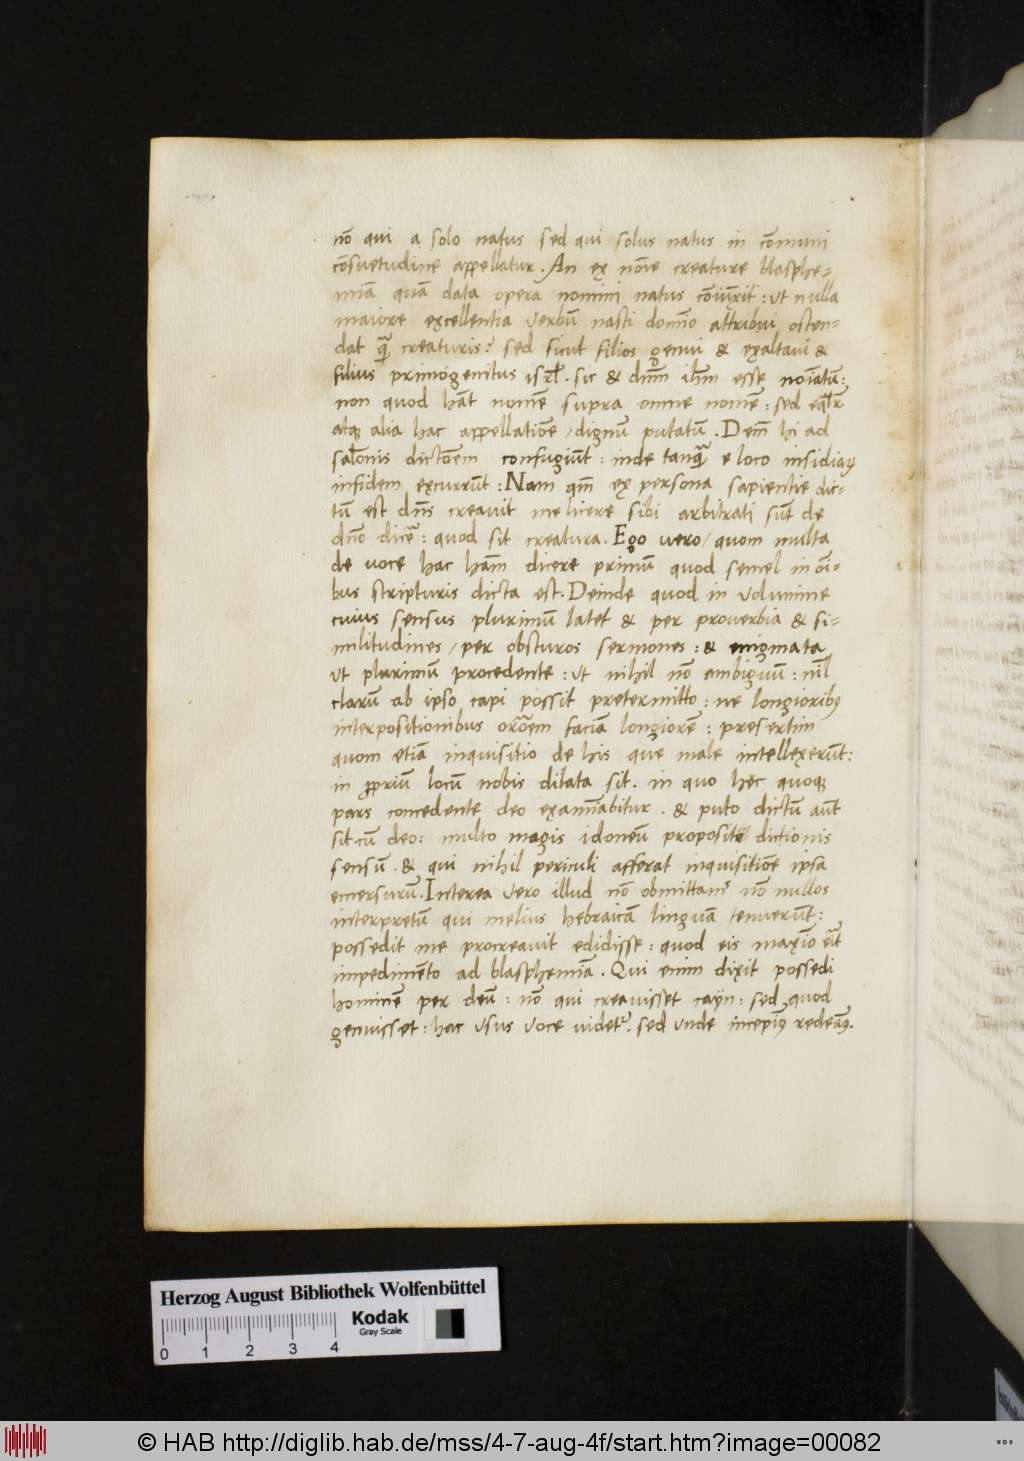 nō qui a solo natus sed qui solus natus in cōmuni
cōsuetudine appellatur. An ex noīe creature blasphe=
miā quā data opera nomini natus cōiūxit: ut nulla
maiore excellentia verbū nasti domīo attribui osten=
dat q̄ creaturis? sed sicut filios genui & exaltavi &
filius primogenitus isrl̄. sic & dn̄m ih̄m esse noīatū:
non quod hāt nomē supra omne nomē: sed eql̄r
atq alia hac appellatiōe / dignū putatū. Dem̄ hi ad
salōnis dictōem confugiūt: inde tanq̄ e loco insidiaꝝ
infidem excurrūt: Nam qm̄ ex persona sapientie dic=
tū est dn̄s creavit me licere sibi arbitrati sūt de
dn̄o dicē: quod sit creatura. Ego vero / quom multa
de voce hac hām dicere primū quod semel in oī=
bus scripturis dicta est. Deinde quod in volumine
cuius sensus plurimū latet & per proverbia & si=
militudines / per obscuros sermones: & enigmata
ut plurimū procedente: ut nihil nō ambiguū: nīl
clarū ab ipso capi possit pretermitto: ne longioribꝰ
interpositionibus orōem faciā longiorē: presertim
quom etiā inquisitio de his que male intellexerūt:
in proriū locū nobis dilata sit. in quo hec quoq
pars concedente deo examīabitur. & puto dictū aūt
sit cū deo: multo magis idoneū proposite dictionis
sensū. & qui nihil periculi afferat inquisitiōe ipsa
emersurū. Interea vero illud nō obmittamꝰ nō nullos
interpretū qui melius hebraicā linguā tenuerūt:
possedit me procreavit edidisse: quod eis maxīo erīt
impedimēto ad blasphemiā. Qui enim dixit possedi
hominē per deū: nō qui creavisset cayn: sed quod
genuisset: hac usus voce videtᷣ. sed unde incepimꝰ redeāꝰ.
Herzog August Bibliothek Wolfenbüttel
Kodak
Gray Scale
0 1 2 3 4
© HAB http://diglib.hab.de/mss/4-7-aug-4f/start.htm?image=00082